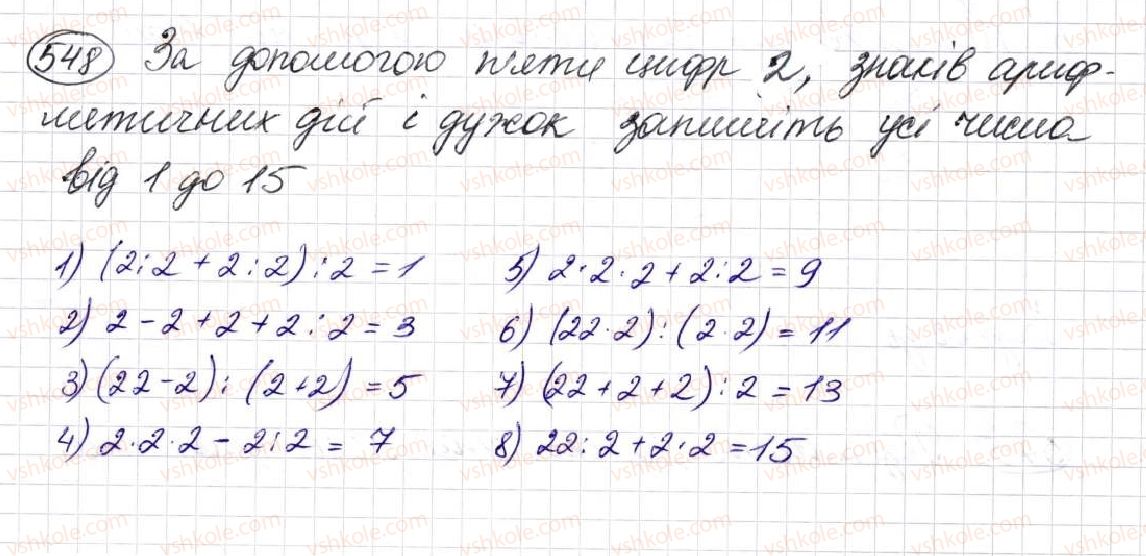 548 За допомогою п'яти цифр 2, знаків ариф-
метичних дій і дужок запишіть усі числа
від 1 до 15
1) (2:2 + 2:2):2 = 1
2) 2 - 2 + 2 + 2:2 = 3
3) (22 - 2):(2+2) = 5
4) 2·2·2 - 2:2 = 7
5) 2·2·2 + 2:2 = 9
6) (22·2):(2·2) = 11
7) (22 + 2 + 2):2 = 13
8) 22:2 + 2·2 = 15